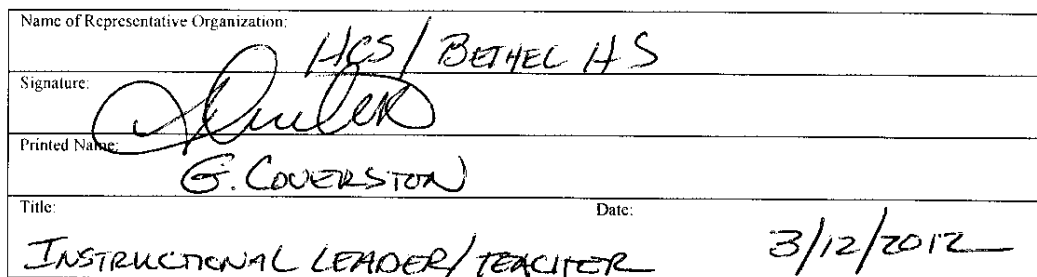 Name of Representative Organization:
HCS/ BETHEL HS
Signature:
Printed Name:
G. COVERSTON
Title: Date:
INSTRUCTIONAL LEADER/TEACHER 3/12/2012